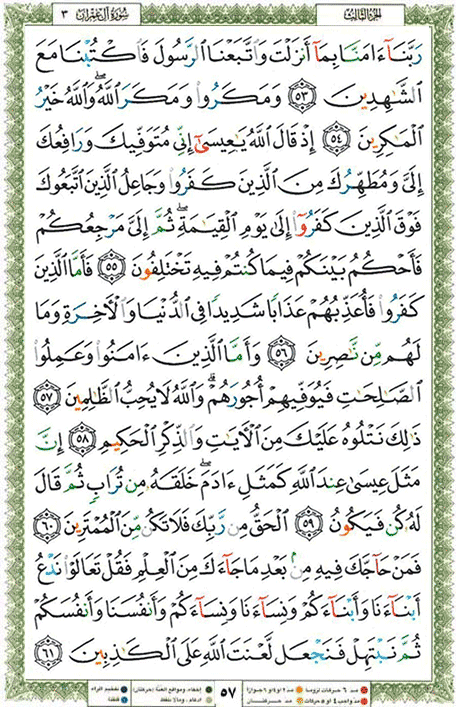 الجزء الثالث سورة آل عمران ٣
رَبَّنَآ ءَامَنَّا بِمَآ أَنزَلْتَ وَٱتَّبَعْنَا ٱلرَّسُولَ فَٱكْتُبْنَا مَعَ
ٱلشَّٰهِدِينَ ٥٣ وَمَكَرُوا۟ وَمَكَرَ ٱللَّهُ ۖ وَٱللَّهُ خَيْرُ
ٱلْمَٰكِرِينَ ٥٤ إِذْ قَالَ ٱللَّهُ يَٰعِيسَىٰٓ إِنِّى مُتَوَفِّيكَ وَرَافِعُكَ
إِلَىَّ وَمُطَهِّرُكَ مِنَ ٱلَّذِينَ كَفَرُوا۟ وَجَاعِلُ ٱلَّذِينَ ٱتَّبَعُوكَ
فَوْقَ ٱلَّذِينَ كَفَرُوٓا۟ إِلَىٰ يَوْمِ ٱلْقِيَٰمَةِ ۖ ثُمَّ إِلَىَّ مَرْجِعُكُمْ
فَأَحْكُمُ بَيْنَكُمْ فِيمَا كُنتُمْ فِيهِ تَخْتَلِفُونَ ٥٥ فَأَمَّا ٱلَّذِينَ
كَفَرُوا۟ فَأُعَذِّبُهُمْ عَذَابًا شَدِيدًا فِى ٱلدُّنْيَا وَٱلْءَاخِرَةِ وَمَا
لَهُم مِّن نَّٰصِرِينَ ٥٦ وَأَمَّا ٱلَّذِينَ ءَامَنُوا۟ وَعَمِلُوا۟
ٱلصَّٰلِحَٰتِ فَيُوَفِّيهِمْ أُجُورَهُمْ ۗ وَٱللَّهُ لَا يُحِبُّ ٱلظَّٰلِمِينَ ٥٧
ذَٰلِكَ نَتْلُوهُ عَلَيْكَ مِنَ ٱلْءَايَٰتِ وَٱلذِّكْرِ ٱلْحَكِيمِ ٥٨ إِنَّ
مَثَلَ عِيسَىٰ عِندَ ٱللَّهِ كَمَثَلِ ءَادَمَ ۖ خَلَقَهُۥ مِن تُرَابٍ ثُمَّ قَالَ
لَهُۥ كُن فَيَكُونُ ٥٩ ٱلْحَقُّ مِن رَّبِّكَ فَلَا تَكُن مِّنَ ٱلْمُمْتَرِينَ ٦٠
فَمَنْ حَآجَّكَ فِيهِ مِنۢ بَعْدِ مَا جَآءَكَ مِنَ ٱلْعِلْمِ فَقُلْ تَعَالَوْا۟ نَدْعُ
أَبْنَآءَنَا وَأَبْنَآءَكُمْ وَنِسَآءَنَا وَنِسَآءَكُمْ وَأَنفُسَنَا وَأَنفُسَكُمْ
ثُمَّ نَبْتَهِلْ فَنَجْعَل لَّعْنَتَ ٱللَّهِ عَلَى ٱلْكَٰذِبِينَ ٦١
مد ٦ حركات لزوما مد ٢ او ٤ او ٦ جوازا
مد واجب ٤ او ٥ حركات مد حركتان
٥٧
إخفاء، ومواقع الغنة (حركتان) تفخيم الراء
ادغام، وما لا يلفظ قلقلة